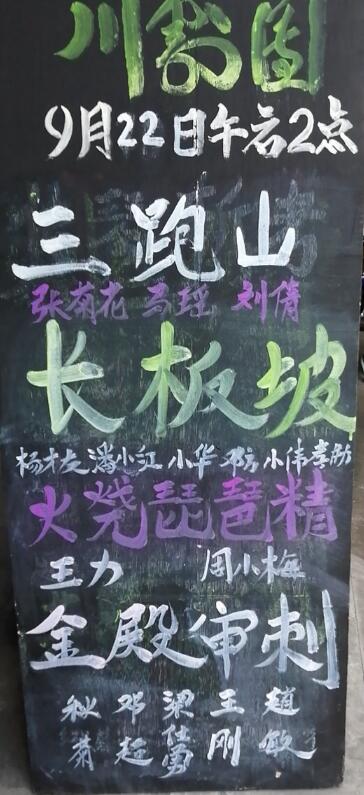 川剧团
9月22日午后2点
三跑山
张菊花 马瑶 刘倩
长板坡
杨才友 潘小江 小华 邓方 小伟 孝勋
火烧琵琶精
王力 周小梅
金殿审刺
秋萧 邓超 梁仕勇 王刚 赵敏